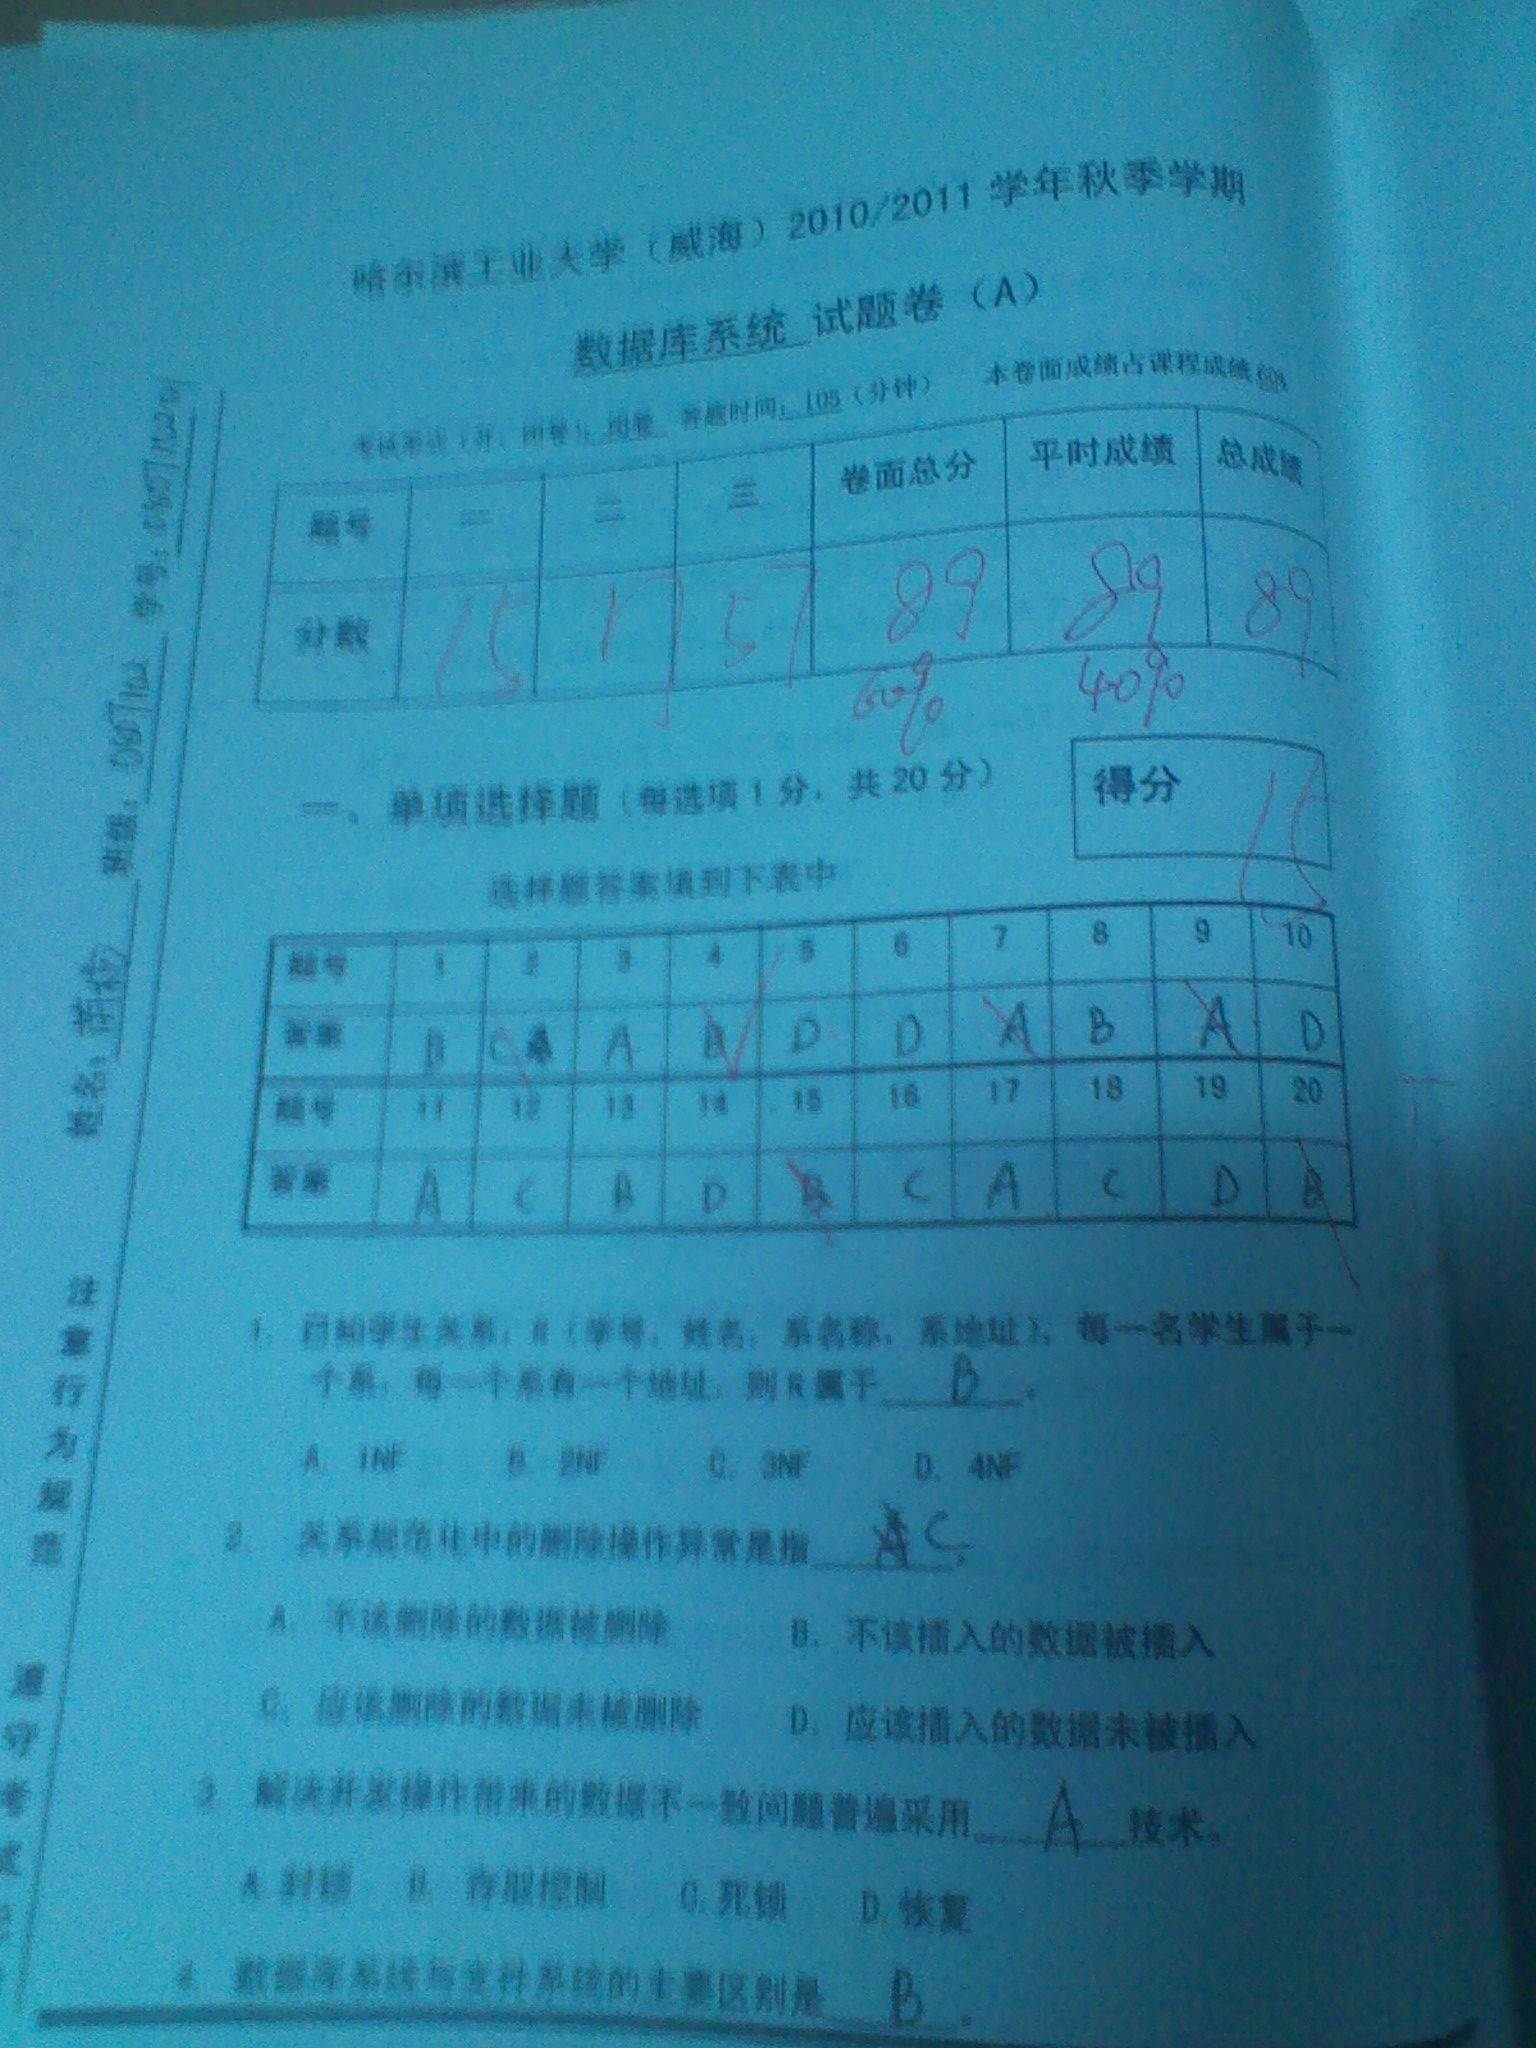 哈尔滨工业大学（威海）2010/2011 学年秋季学期
数据库系统 试题卷（A）
考试形式（开、闭卷）：闭卷 答题时间：105（分钟） 本卷面成绩占课程成绩 60%
题号 一 二 三 卷面总分 平时成绩 总成绩
分数 15 17 57 89 89 89
60% 40%
一、单项选择题（每选项 1 分，共 20 分）
得分 15
选择题答案填到下表中
题号 1 2 3 4 5 6 7 8 9 10
答案 B C A B D D A B A D
题号 11 12 13 14 15 16 17 18 19 20
答案 A C B D B C A C D B
1. 已知学生关系：R（学号，姓名，系名称，系地址），每一名学生属于一
个系，每一个系有一个地址，则 R 属于 B 。
A. 1NF B. 2NF C. 3NF D. 4NF
2. 关系规范化中的删除操作异常是指 C 。
A. 不该删除的数据被删除 B. 不该插入的数据被插入
C. 应该删除的数据未被删除 D. 应该插入的数据未被插入
3. 解决并发操作带来的数据不一致问题普遍采用 A 技术。
A.封锁 B. 存取控制 C.死锁 D.恢复
4. 数据库系统与文件系统的主要区别是 B 。
姓名： 班级： 学号：
注意行为规范
遵守考试